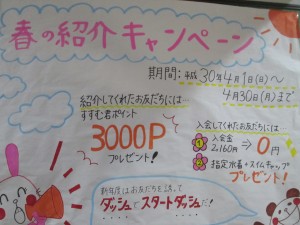 春の紹介キャンペーン
期間:平成30年4月1日(日)~
4月30日(月)まで
紹介してくれたお友だちには
すすむ君ポイント
3000P
プレゼント!
入会してくれたお友だちには
① 入会金
2,160円⇒0円
② 指定水着+スイムキャップ
プレゼント!
新年度はお友だちを誘って
ダッシュでスタートダッシュだ!